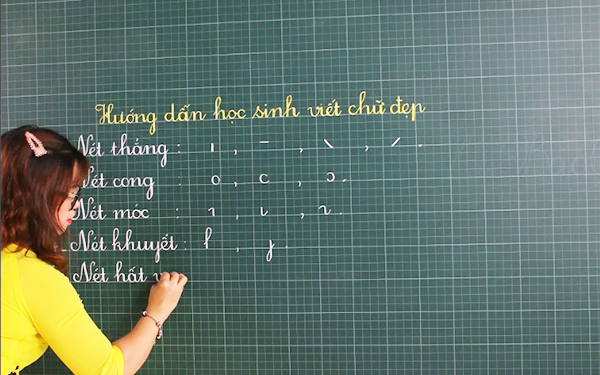 Hướng dẫn học sinh viết chữ đẹp
Nét thẳng : ı , − , \ , / .
Nét cong : o , c , ɔ .
Nét móc : ı , ι , ı .
Nét khuyết : l , y .
Nét hất v